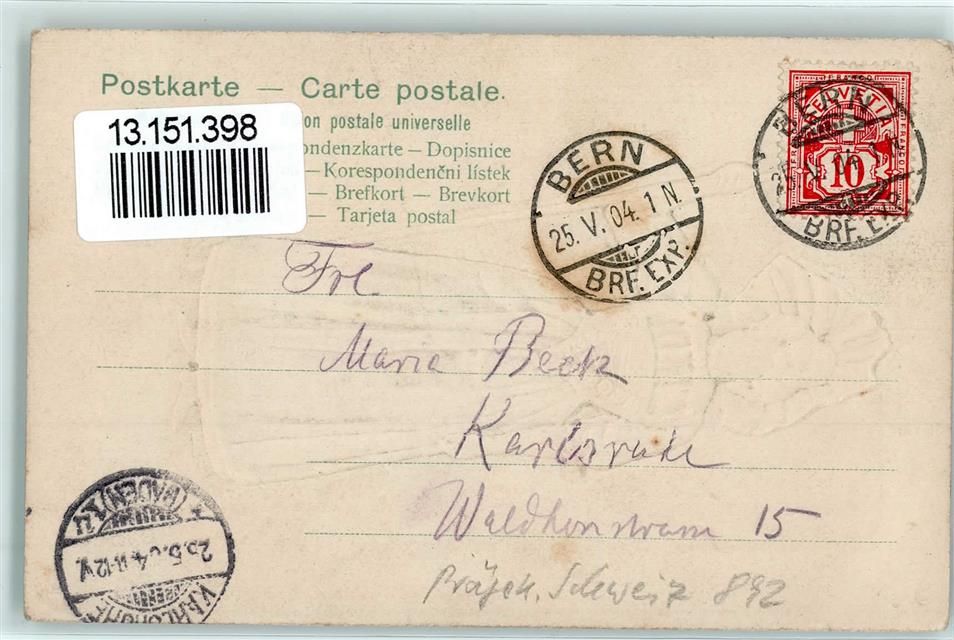 Postkarte — Carte postale.
13.151.398
on postale universelle
ondenzkarte – Dopisnice
– Korespondenční lístek
– Brefkort – Brevkort
– Tarjeta postal
BERN
25. V. 04. 1 N.
BRF. EXP.
BERN
BRF. EXP.
FRANCO
HELVETIA
10
Frl
Maria Beck
Karlsruhe
Waldhornstrasse 15
Schweiz 892
KARLSRUHE
(BADEN)
25.5.04 11-12V.